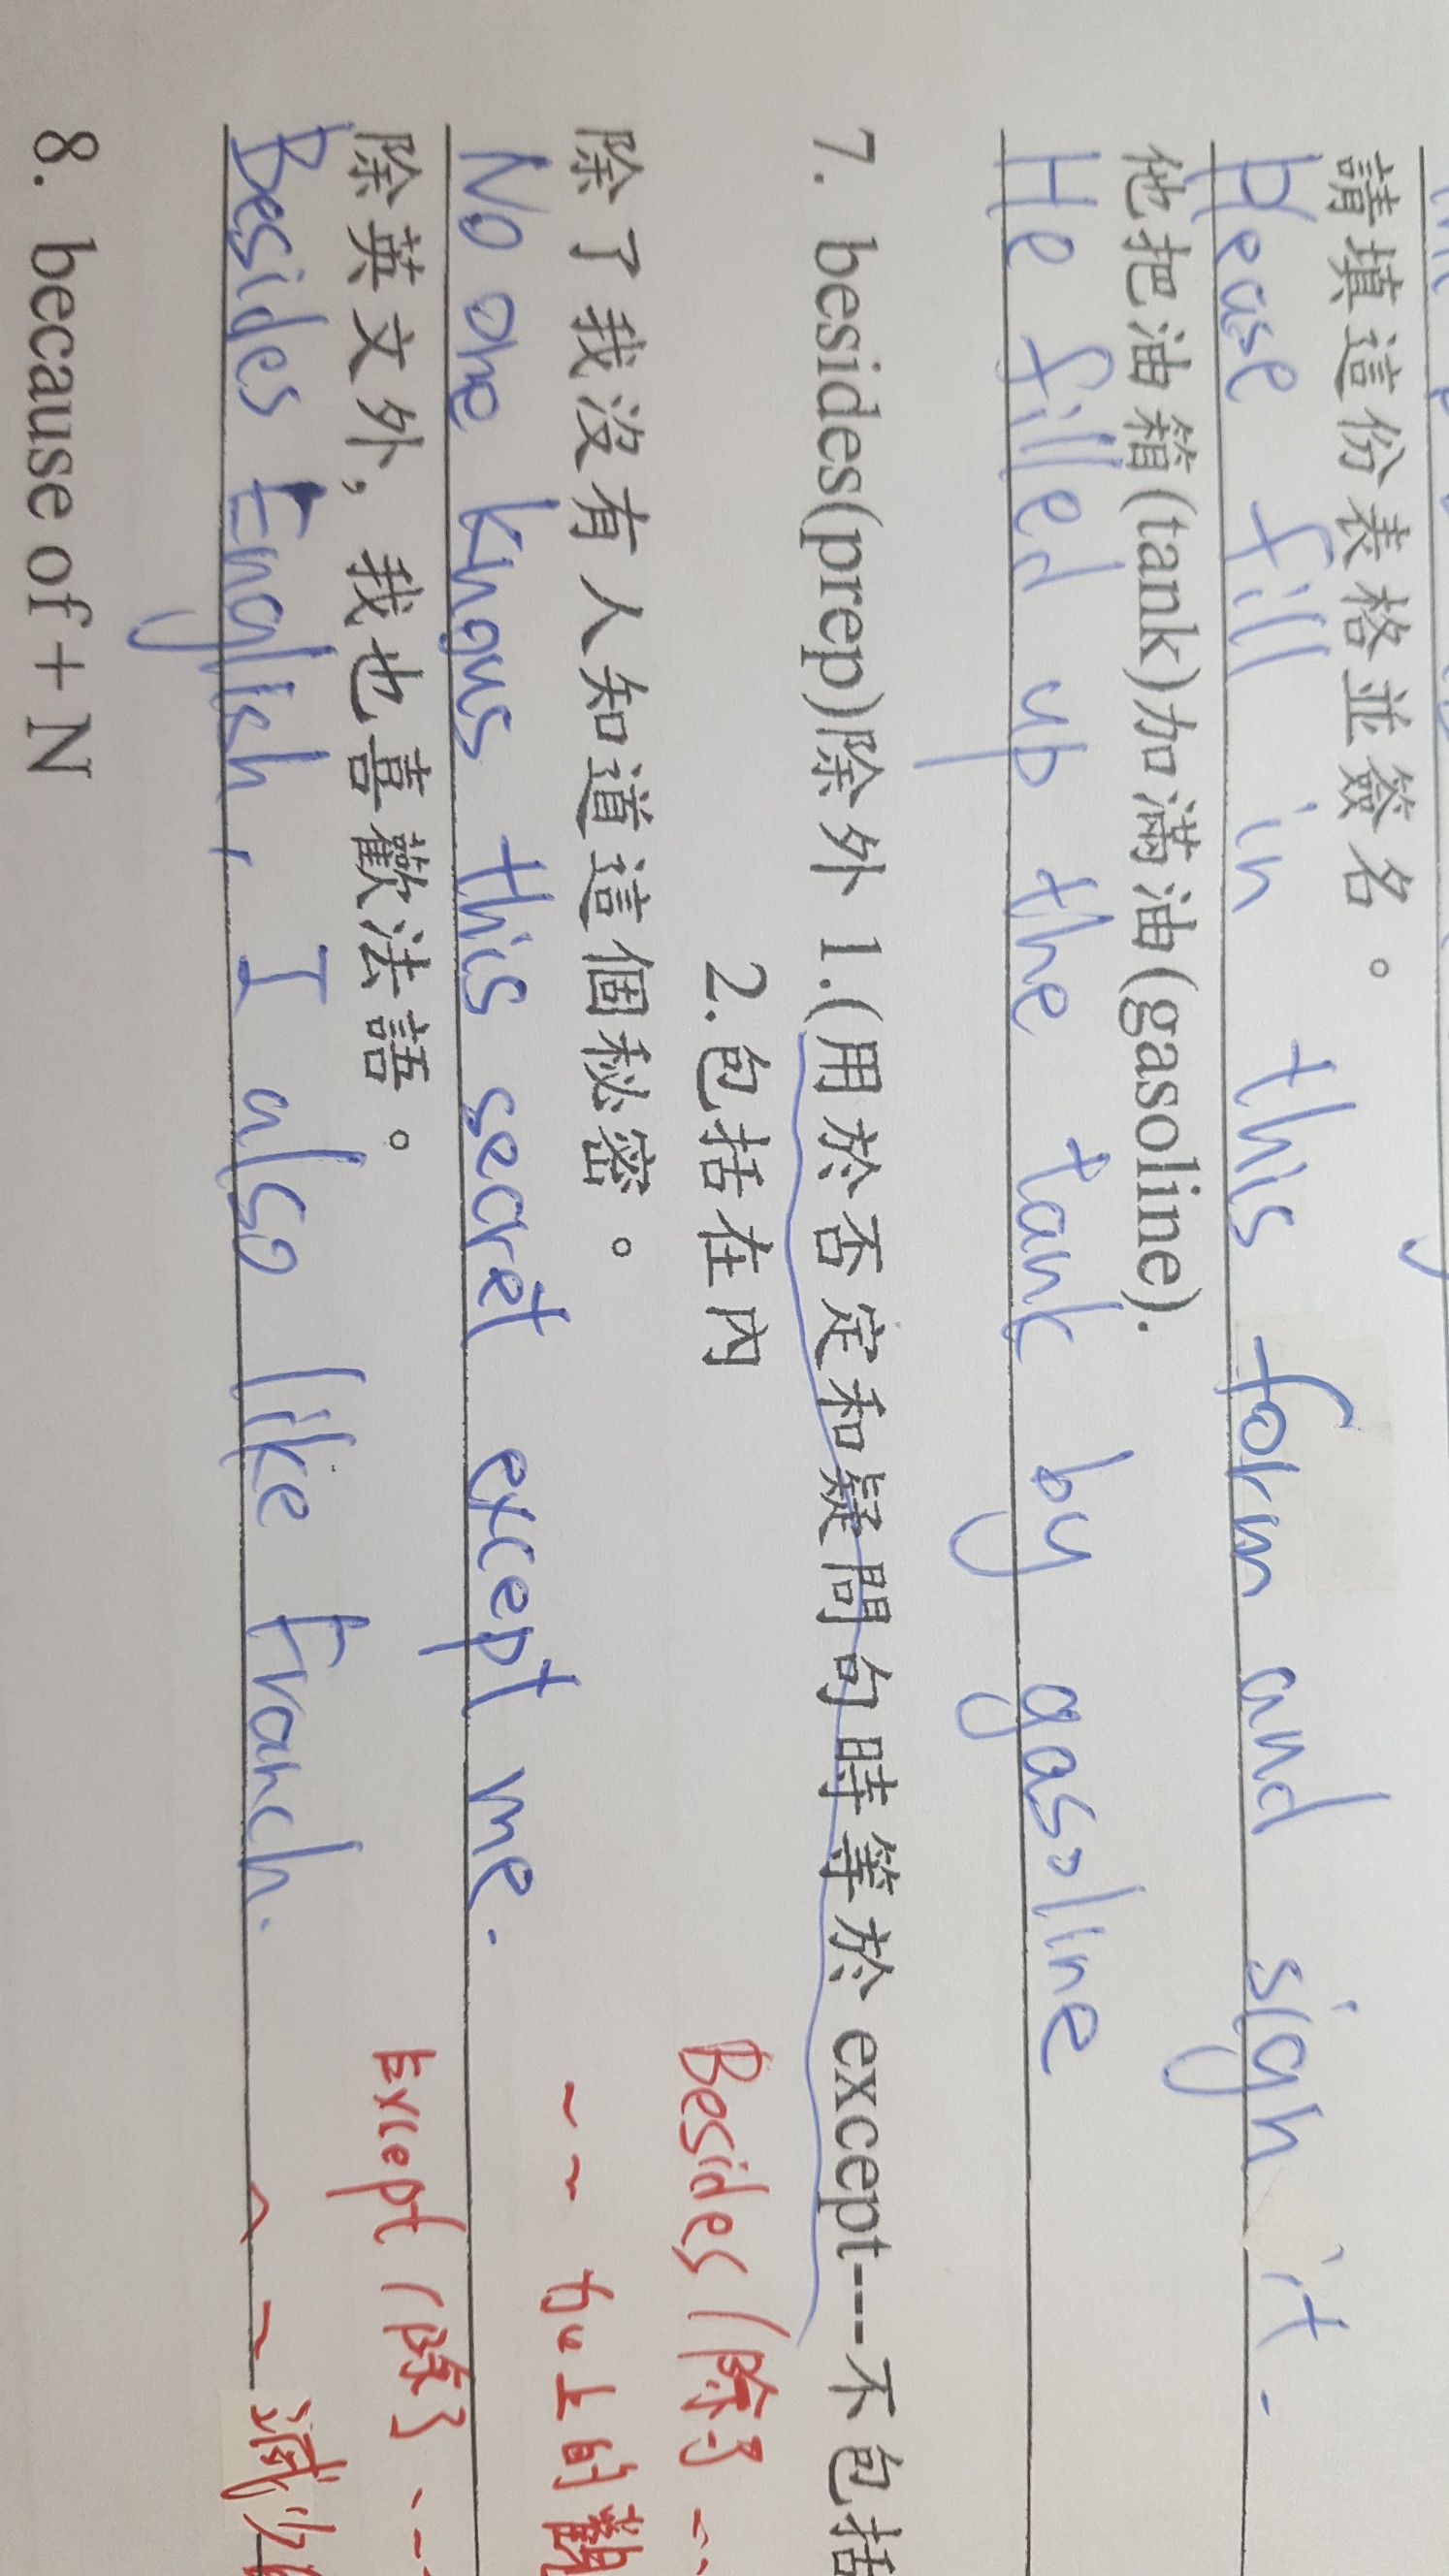 請填這份表格並簽名。
Please fill in this form and sign it.
他把油箱(tank)加滿油(gasoline).
He filled up the tank by gasoline
7. besides(prep)除外 1.(用於否定和疑問句時等於 except---不包括
2.包括在內
Besides (除了
除了我沒有人知道這個秘密。
~~ 加上的觀
No one knows this secret except me.
Except (除了
除英文外，我也喜歡法語。
Besides English, I also like Franch.
~~減少
8. because of + N